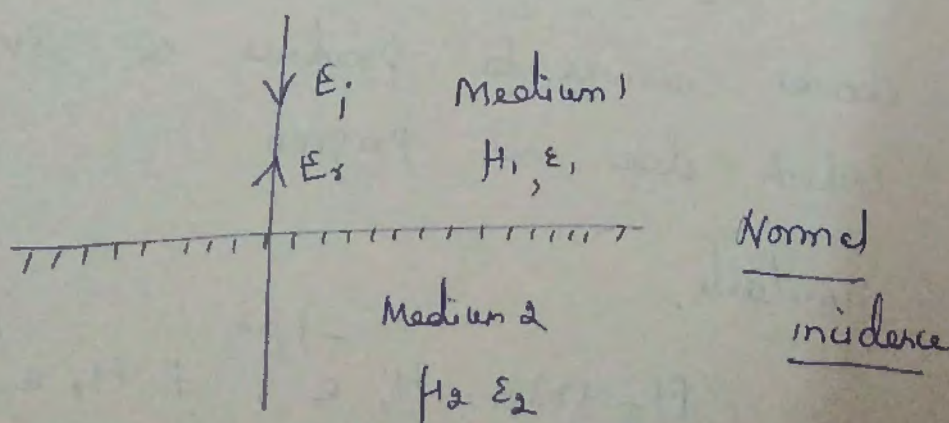 Ei Medium 1
Er μ1, ε1
Normal
incidence
Medium 2
μ2 ε2